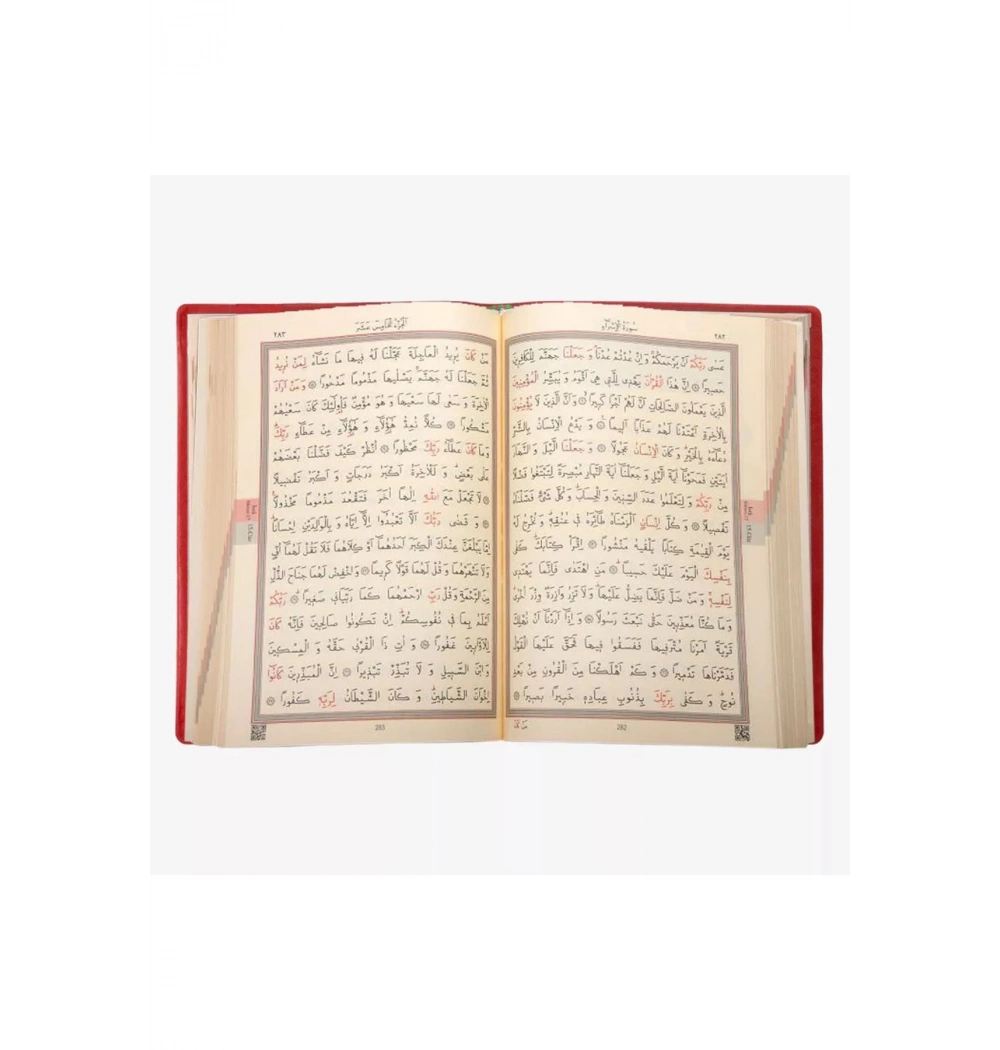 ٢٨٢
سُورَةُ الْإِسْرَاءِ
عَسٰى رَبُّكُمْ اَنْ يَرْحَمَكُمْۚ وَاِنْ عُدْتُمْ عُدْنَاۢ وَ جَعَلْنَا جَهَنَّمَ لِلْكَافِر۪ينَ
حَص۪يرًا ﴿٨﴾ اِنَّ هٰذَا الْقُرْاٰنَ يَهْد۪ي لِلَّت۪ي هِيَ اَقْوَمُ وَ يُبَشِّرُ الْمُؤْمِن۪ينَ
الَّذ۪ينَ يَعْمَلُونَ الصَّالِحَاتِ اَنَّ لَهُمْ اَجْرًا كَب۪يرًاۙ ﴿٩﴾ وَاَنَّ الَّذ۪ينَ لَا يُؤْمِنُونَ
بِالْاٰخِرَةِ اَعْتَدْنَا لَهُمْ عَذَابًا اَل۪يمًا۟ ﴿١٠﴾ وَ يَدْعُ الْاِنْسَانُ بِالشَّرِّ
دُعَٓاءَهُ بِالْخَيْرِۜ وَ كَانَ الْاِنْسَانُ عَجُولًا ﴿١١﴾ وَ جَعَلْنَا الَّيْلَ وَ النَّهَارَ
اٰيَتَيْنِ فَمَحَوْنَٓا اٰيَةَ الَّيْلِ وَ جَعَلْنَٓا اٰيَةَ النَّهَارِ مُبْصِرَةً لِتَبْتَغُوا فَضْلًا
مِنْ رَبِّكُمْ وَ لِتَعْلَمُوا عَدَدَ السِّن۪ينَ وَ الْحِسَابَۜ وَ كُلَّ شَيْءٍ فَصَّلْنَاهُ
تَفْص۪يلًا ﴿١٢﴾ وَ كُلَّ اِنْسَانٍ اَلْزَمْنَاهُ طَٓائِرَهُ ف۪ي عُنُقِه۪ۜ وَ نُخْرِجُ لَهُ
يَوْمَ الْقِيٰمَةِ كِتَابًا يَلْقٰيهُ مَنْشُورًا ﴿١٣﴾ اِقْرَأْ كِتَابَكَۜ كَفٰى
بِنَفْسِكَ الْيَوْمَ عَلَيْكَ حَس۪يبًاۜ ﴿١٤﴾ مَنِ اهْتَدٰى فَاِنَّمَا يَهْتَد۪ي
لِنَفْسِه۪ۚ وَ مَنْ ضَلَّ فَاِنَّمَا يَضِلُّ عَلَيْهَاۜ وَ لَا تَزِرُ وَازِرَةٌ وِزْرَ اُخْرٰىۜ
وَ مَا كُنَّا مُعَذِّب۪ينَ حَتّٰى نَبْعَثَ رَسُولًا ﴿١٥﴾ وَ اِذَٓا اَرَدْنَٓا اَنْ نُهْلِكَ
قَرْيَةً اَمَرْنَا مُتْرَف۪يهَا فَفَسَقُوا ف۪يهَا فَحَقَّ عَلَيْهَا الْقَوْلُ
فَدَمَّرْنَاهَا تَدْم۪يرًا ﴿١٦﴾ وَ كَمْ اَهْلَكْنَا مِنَ الْقُرُونِ مِنْ بَعْدِ
نُوحٍۜ وَ كَفٰى بِرَبِّكَ بِذُنُوبِ عِبَادِه۪ خَب۪يرًا بَص۪يرًا ﴿١٧﴾
282
مَنْ كَانَ
الْجُزْءُ الْخَامِسَ عَشَرَ
٢٨٣
مَنْ كَانَ يُر۪يدُ الْعَاجِلَةَ عَجَّلْنَا لَهُ ف۪يهَا مَا نَشَٓاءُ لِمَنْ نُر۪يدُ
ثُمَّ جَعَلْنَا لَهُ جَهَنَّمَۚ يَصْلٰيهَا مَذْمُومًا مَدْحُورًا ﴿١٨﴾ وَ مَنْ اَرَادَ
الْاٰخِرَةَ وَ سَعٰى لَهَا سَعْيَهَا وَ هُوَ مُؤْمِنٌ فَاُو۬لٰٓئِكَ كَانَ سَعْيُهُمْ
مَشْكُورًا ﴿١٩﴾ كُلًّا نُمِدُّ هٰٓؤُ۬لَٓاءِ وَ هٰٓؤُ۬لَٓاءِ مِنْ عَطَٓاءِ رَبِّكَۜ
وَ مَا كَانَ عَطَٓاءُ رَبِّكَ مَحْظُورًا ﴿٢٠﴾ اُنْظُرْ كَيْفَ فَضَّلْنَا بَعْضَهُمْ
عَلٰى بَعْضٍۜ وَ لَلْاٰخِرَةُ اَكْبَرُ دَرَجَاتٍ وَ اَكْبَرُ تَفْض۪يلًا
﴿٢١﴾ لَا تَجْعَلْ مَعَ اللّٰهِ اِلٰهًا اٰخَرَ فَتَقْعُدَ مَذْمُومًا مَخْذُولًا۟
﴿٢٢﴾ وَ قَضٰى رَبُّكَ اَلَّا تَعْبُدُٓوا اِلَّٓا اِيَّاهُ وَ بِالْوَالِدَيْنِ اِحْسَانًاۜ
اِمَّا يَبْلُغَنَّ عِنْدَكَ الْكِبَرَ اَحَدُهُمَٓا اَوْ كِلَاهُمَا فَلَا تَقُلْ لَهُمَٓا اُفٍّ
وَلَا تَنْهَرْهُمَا وَ قُلْ لَهُمَا قَوْلًا كَر۪يمًا ﴿٢٣﴾ وَاخْفِضْ لَهُمَا جَنَاحَ الذُّلِّ
مِنَ الرَّحْمَةِ وَ قُلْ رَبِّ ارْحَمْهُمَا كَمَا رَبَّيَان۪ي صَغ۪يرًاۜ ﴿٢٤﴾ رَبُّكُمْ
اَعْلَمُ بِمَا ف۪ي نُفُوسِكُمْۜ اِنْ تَكُونُوا صَالِح۪ينَ فَاِنَّهُ كَانَ
لِلْاَوَّاب۪ينَ غَفُورًا ﴿٢٥﴾ وَ اٰتِ ذَا الْقُرْبٰى حَقَّهُ وَ الْمِسْك۪ينَ
وَابْنَ السَّب۪يلِ وَ لَا تُبَذِّرْ تَبْذ۪يرًا ﴿٢٦﴾ اِنَّ الْمُبَذِّر۪ينَ كَانُٓوا
اِخْوَانَ الشَّيَاط۪ينِۜ وَ كَانَ الشَّيْطَانُ لِرَبِّه۪ كَفُورًا ﴿٢٧﴾
283